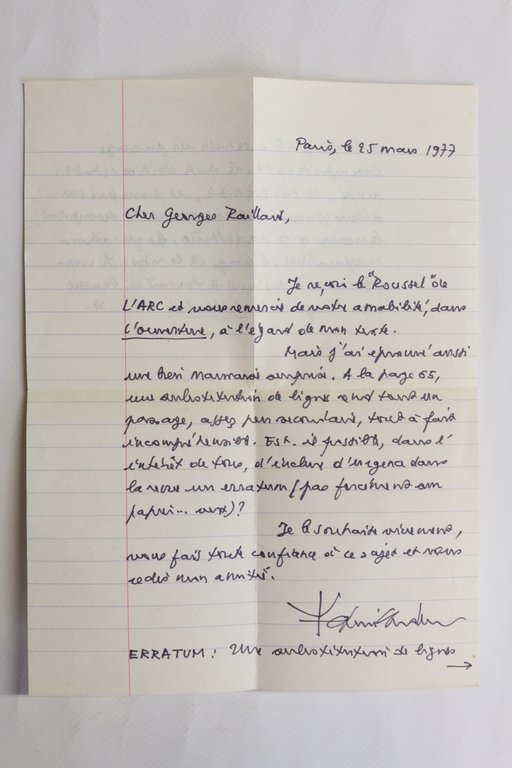 Paris, le 25 mars 1977
Cher Georges Raillard,
Je reçois le "Roussel" de
L'ARC et vous remercie de votre amabilité, dans
l'ouverture, à l'égard de mon texte.
Mais j'ai éprouvé aussi
une très mauvaise surprise. A la page 65,
une substitution de lignes rend tout un
passage, assez peu secondaire, tout à fait
incompréhensible. Est-il possible, dans l'
intérêt de tous, d'inclure d'urgence dans
la revue un erratum (pas forcément sur
papier... vert)?
Je le souhaite vivement,
vous fais toute confiance à ce sujet et vous
redis mon amitié.
ERRATUM: Une substitution de lignes
→